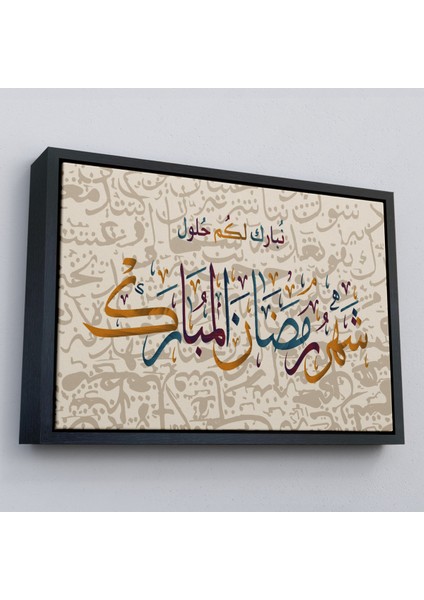 نُبارك لكُم حُلول
شَهْرُ رَمَضَانَ المُبَارَك